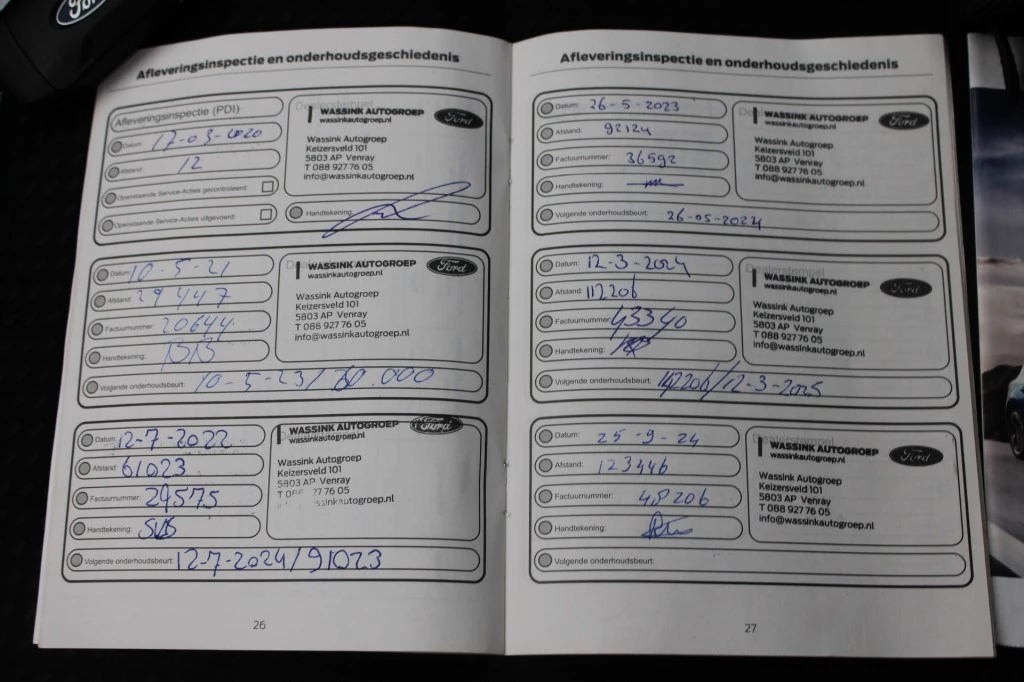 Ford
Afleveringsinspectie en onderhoudsgeschiedenis
Afleveringsinspectie (PDI)
Datum: 17-03-2020
Afstand: 12
Openstaande Service-Acties gecontroleerd:
Openstaande Service-Acties uitgevoerd:
Dealerstempel
WASSINK AUTOGROEP
wassinkautogroep.nl
Ford
Wassink Autogroep
Keizersveld 101
5803 AP Venray
T 088 927 76 05
info@wassinkautogroep.nl
Handtekening:
Datum: 10-5-21
Afstand: 29447
Factuurnummer: 20644
Handtekening:
Volgende onderhoudsbeurt: 10-5-23/ 60.000
WASSINK AUTOGROEP
wassinkautogroep.nl
Ford
Wassink Autogroep
Keizersveld 101
5803 AP Venray
T 088 927 76 05
info@wassinkautogroep.nl
Datum: 12-7-2022
Afstand: 61023
Factuurnummer: 29575
Handtekening:
Volgende onderhoudsbeurt: 12-7-2024/91023
WASSINK AUTOGROEP
wassinkautogroep.nl
Ford
Wassink Autogroep
Keizersveld 101
5803 AP Venray
T 08 77 76 05
ssinkautogroep.nl
26
Afleveringsinspectie en onderhoudsgeschiedenis
Datum: 26-5-2023
Afstand: 92124
Factuurnummer: 36592
Handtekening:
Volgende onderhoudsbeurt: 26-05-2024
WASSINK AUTOGROEP
wassinkautogroep.nl
Ford
Wassink Autogroep
Keizersveld 101
5803 AP Venray
T 088 927 76 05
info@wassinkautogroep.nl
Datum: 12-3-2024
Afstand: 112206
Factuurnummer: 43340
Handtekening:
Volgende onderhoudsbeurt: 142206/12-3-2025
Dealerstempel
WASSINK AUTOGROEP
wassinkautogroep.nl
Ford
Wassink Autogroep
Keizersveld 101
5803 AP Venray
T 088 927 76 05
info@wassinkautogroep.nl
Datum: 25-9-24
Afstand: 123446
Factuurnummer: 48206
Handtekening:
Volgende onderhoudsbeurt:
Dealerstempel
WASSINK AUTOGROEP
wassinkautogroep.nl
Ford
Wassink Autogroep
Keizersveld 101
5803 AP Venray
T 088 927 76 05
info@wassinkautogroep.nl
27